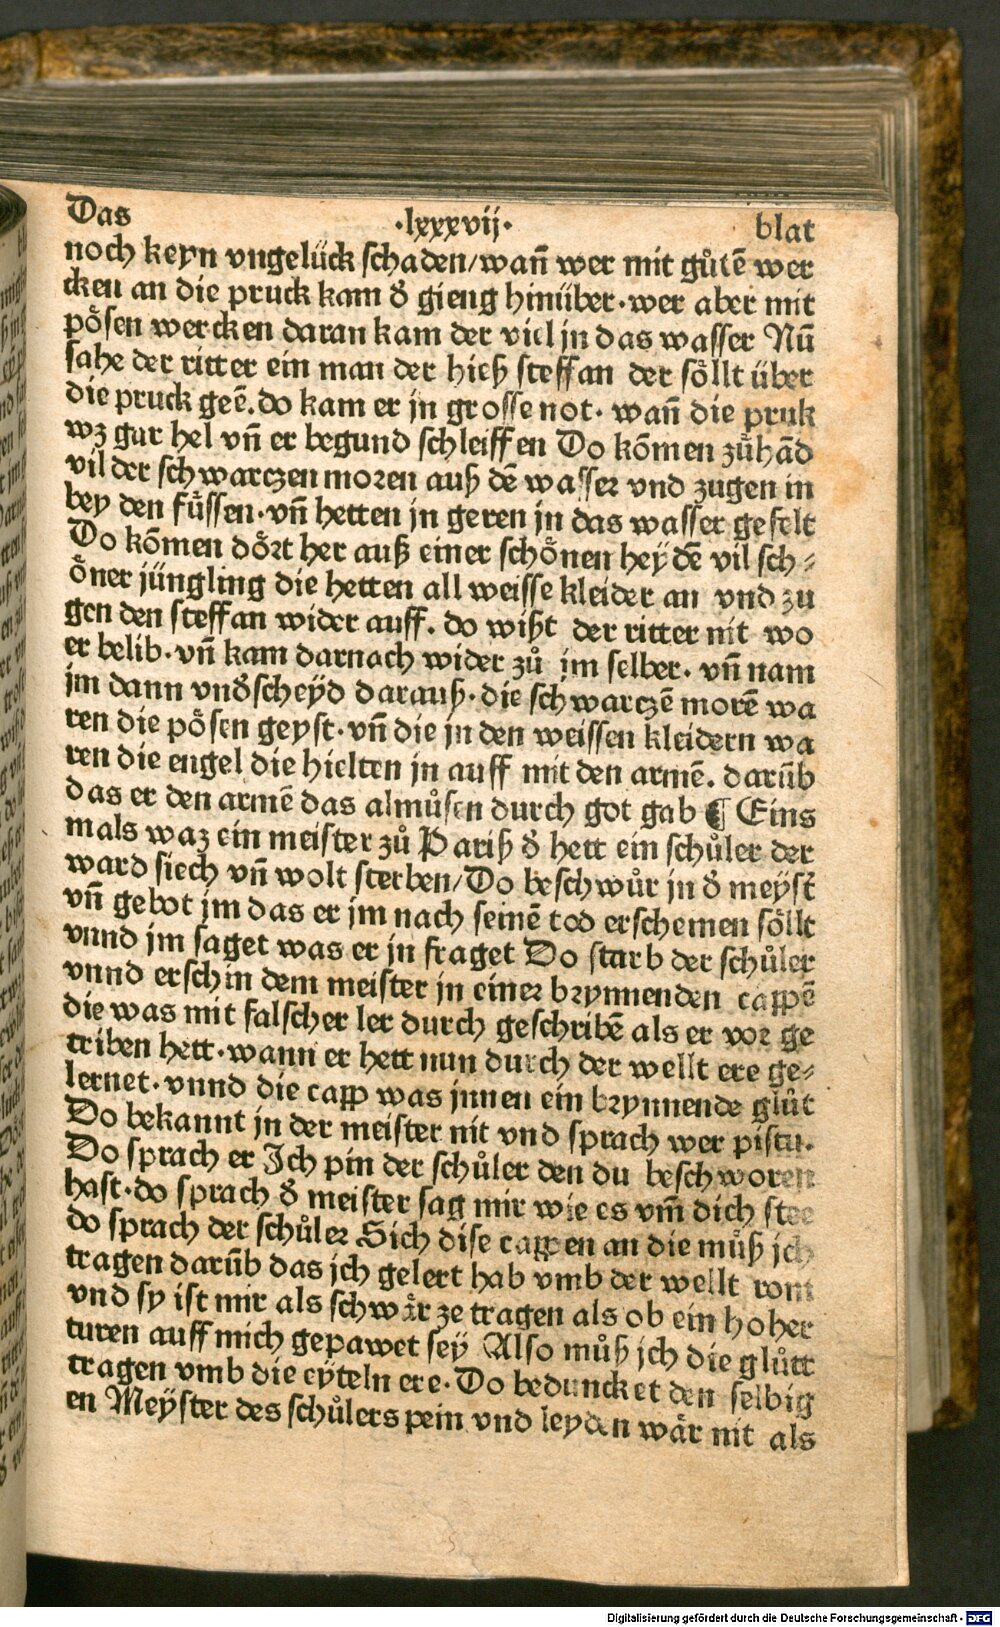 Das ·lxxxvij· blat
noch keyn vngelück schaden/wañ wer mit gůtē wer
cken an die pruck kam ď gieng hinüber·wer aber mit
pösen wercken daran kam der viel jn das wasser Nū
sahe der ritter ein man der hieß steffan der söllt über
die pruck geē.do kam er jn grosse not· wañ die pruk
wz gar hel vñ er begund schleiffen Do kōmen zůhād
vil der schwarczen moren auß dē wasser vnd zugen in
bey den füssen·vñ hetten jn geren jn das wasser gefelt
Do kōmen dört her auß einer schönen heydē vil sch⸗
öner jüngling die hetten all weisse kleider an vnd zu
gen den steffan wider auff. do wißt der ritter nit wo
er belib·vñ kam darnach wider zů jm selber. vñ nam
jm dann vnďscheyd darauß·die schwarczē morē wa
ren die pösen geyst·vñ die jn den weissen kleidern wa
ren die engel die hielten jn auff mit den armē. darūb
das er den armē das almůsen durch got gab ¶ Eins
mals waz ein meister zů Pariß ď hett ein schůler der
ward siech vñ wolt sterben/Do beschwůr jn ď meyst̄
vñ gebot jm das er jm nach seinē tod erschemen söllt
vnnd jm saget was er jn fraget Do starb der schůler
vnnd erschin dem meister jn einer brynnenden cappē
die was mit falscher ler durch geschribē als er vor ge
triben hett·wann er hett nun durch der wellt ere ge⸗
lernet·vnnd die capp was jnnen ein brynnende glůt
Do bekannt jn der meister nit vnd sprach wer pistu.
Do sprach er Jch pin der schůler den du beschworen
hast·do sprach ď meister sag mir wie es vm̄ dich stee
do sprach der schůler Sich dise cappen an die můß jch
tragen darūb das jch gelert hab vmb der wellt rom
vnd sy ist mir als schwär ze tragen als ob ein hoher
turen auff mich gepawet sey Also můß jch die glůtt
tragen vmb die eyteln ere·Do beduncket den selbig
en Meyster des schůlers pein vnd leyden wär nit als
Digitalisierung gefördert durch die Deutsche Forschungsgemeinschaft - DFG